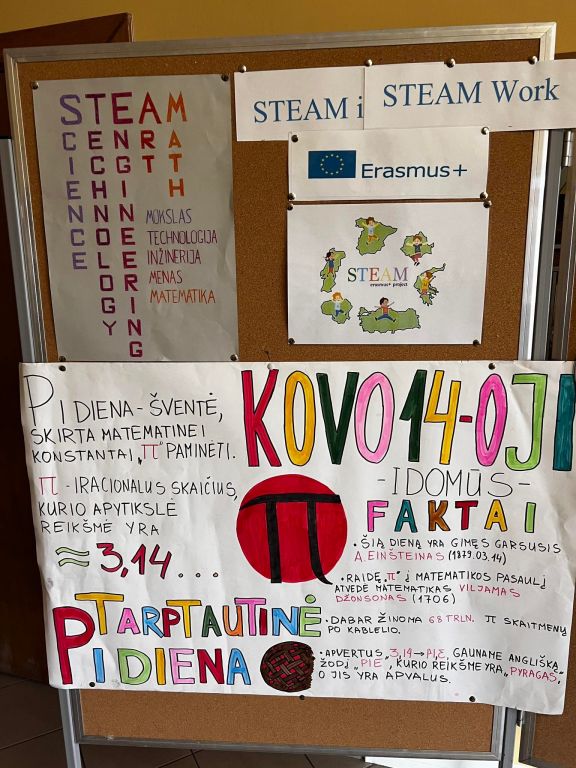 STEAM
SCIENCE
TECHNOLOGY
ENGINEERING
ART
MATH
MOKSLAS
TECHNOLOGIJA
INŽINERIJA
MENAS
MATEMATIKA
STEAM i
STEAM Work
Erasmus+
STEAM
erasmus+ project
PI DIENA - ŠVENTĖ,
SKIRTA MATEMATINEI
KONSTANTAI „π" PAMINĖTI.
π - IRACIONALUS SKAIČIUS,
KURIO APYTIKSLĖ
REIKŠMĖ YRA
≈ 3,14...
TARPTAUTINĖ
PI DIENA
π
KOVO 14-OJI
- ĮDOMŪS -
FAKTAI
• ŠIĄ DIENĄ YRA GIMĘS GARSUSIS
A. EINŠTEINAS (1879.03.14)
• RAIDĘ „π" Į MATEMATIKOS PASAULĮ
ATVEDĖ MATEMATIKAS VILJAMAS
DŽONSONAS (1706)
• DABAR ŽINOMA 68 TRLN. π SKAITMENŲ
PO KABLELIO.
• APVERTUS 3,14 → PI,E GAUNAME ANGLIŠKĄ
ŽODĮ „PIE", KURIO REIKŠMĖ YRA „PYRAGAS",
O JIS YRA APVALUS.